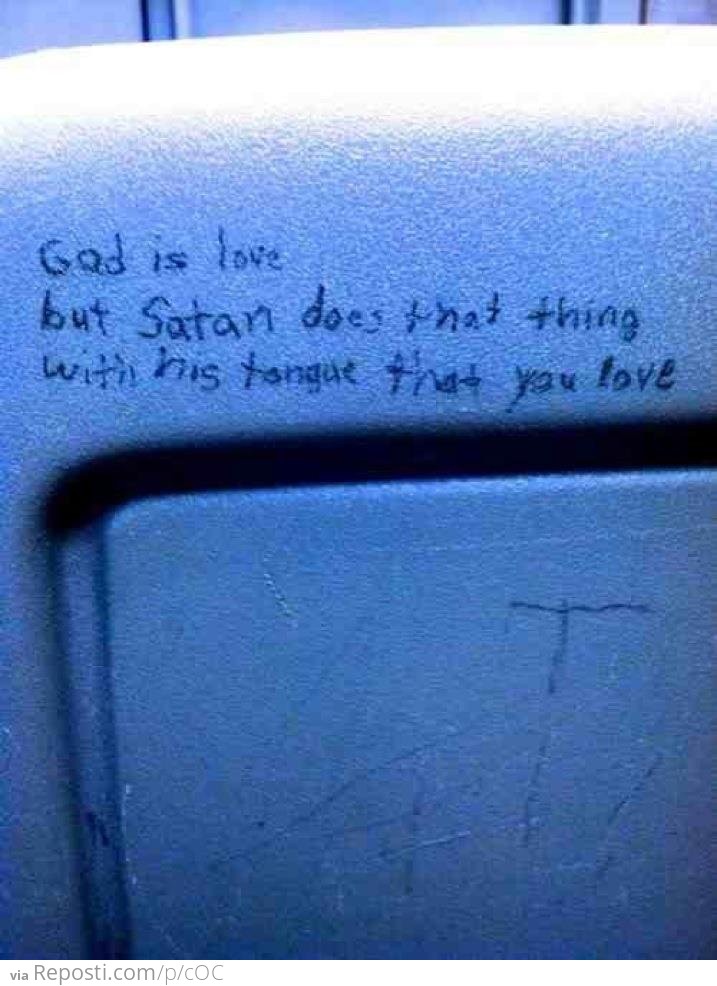 God is love
but Satan does that thing
with his tongue that you love
T
via Reposti.com/p/cOC